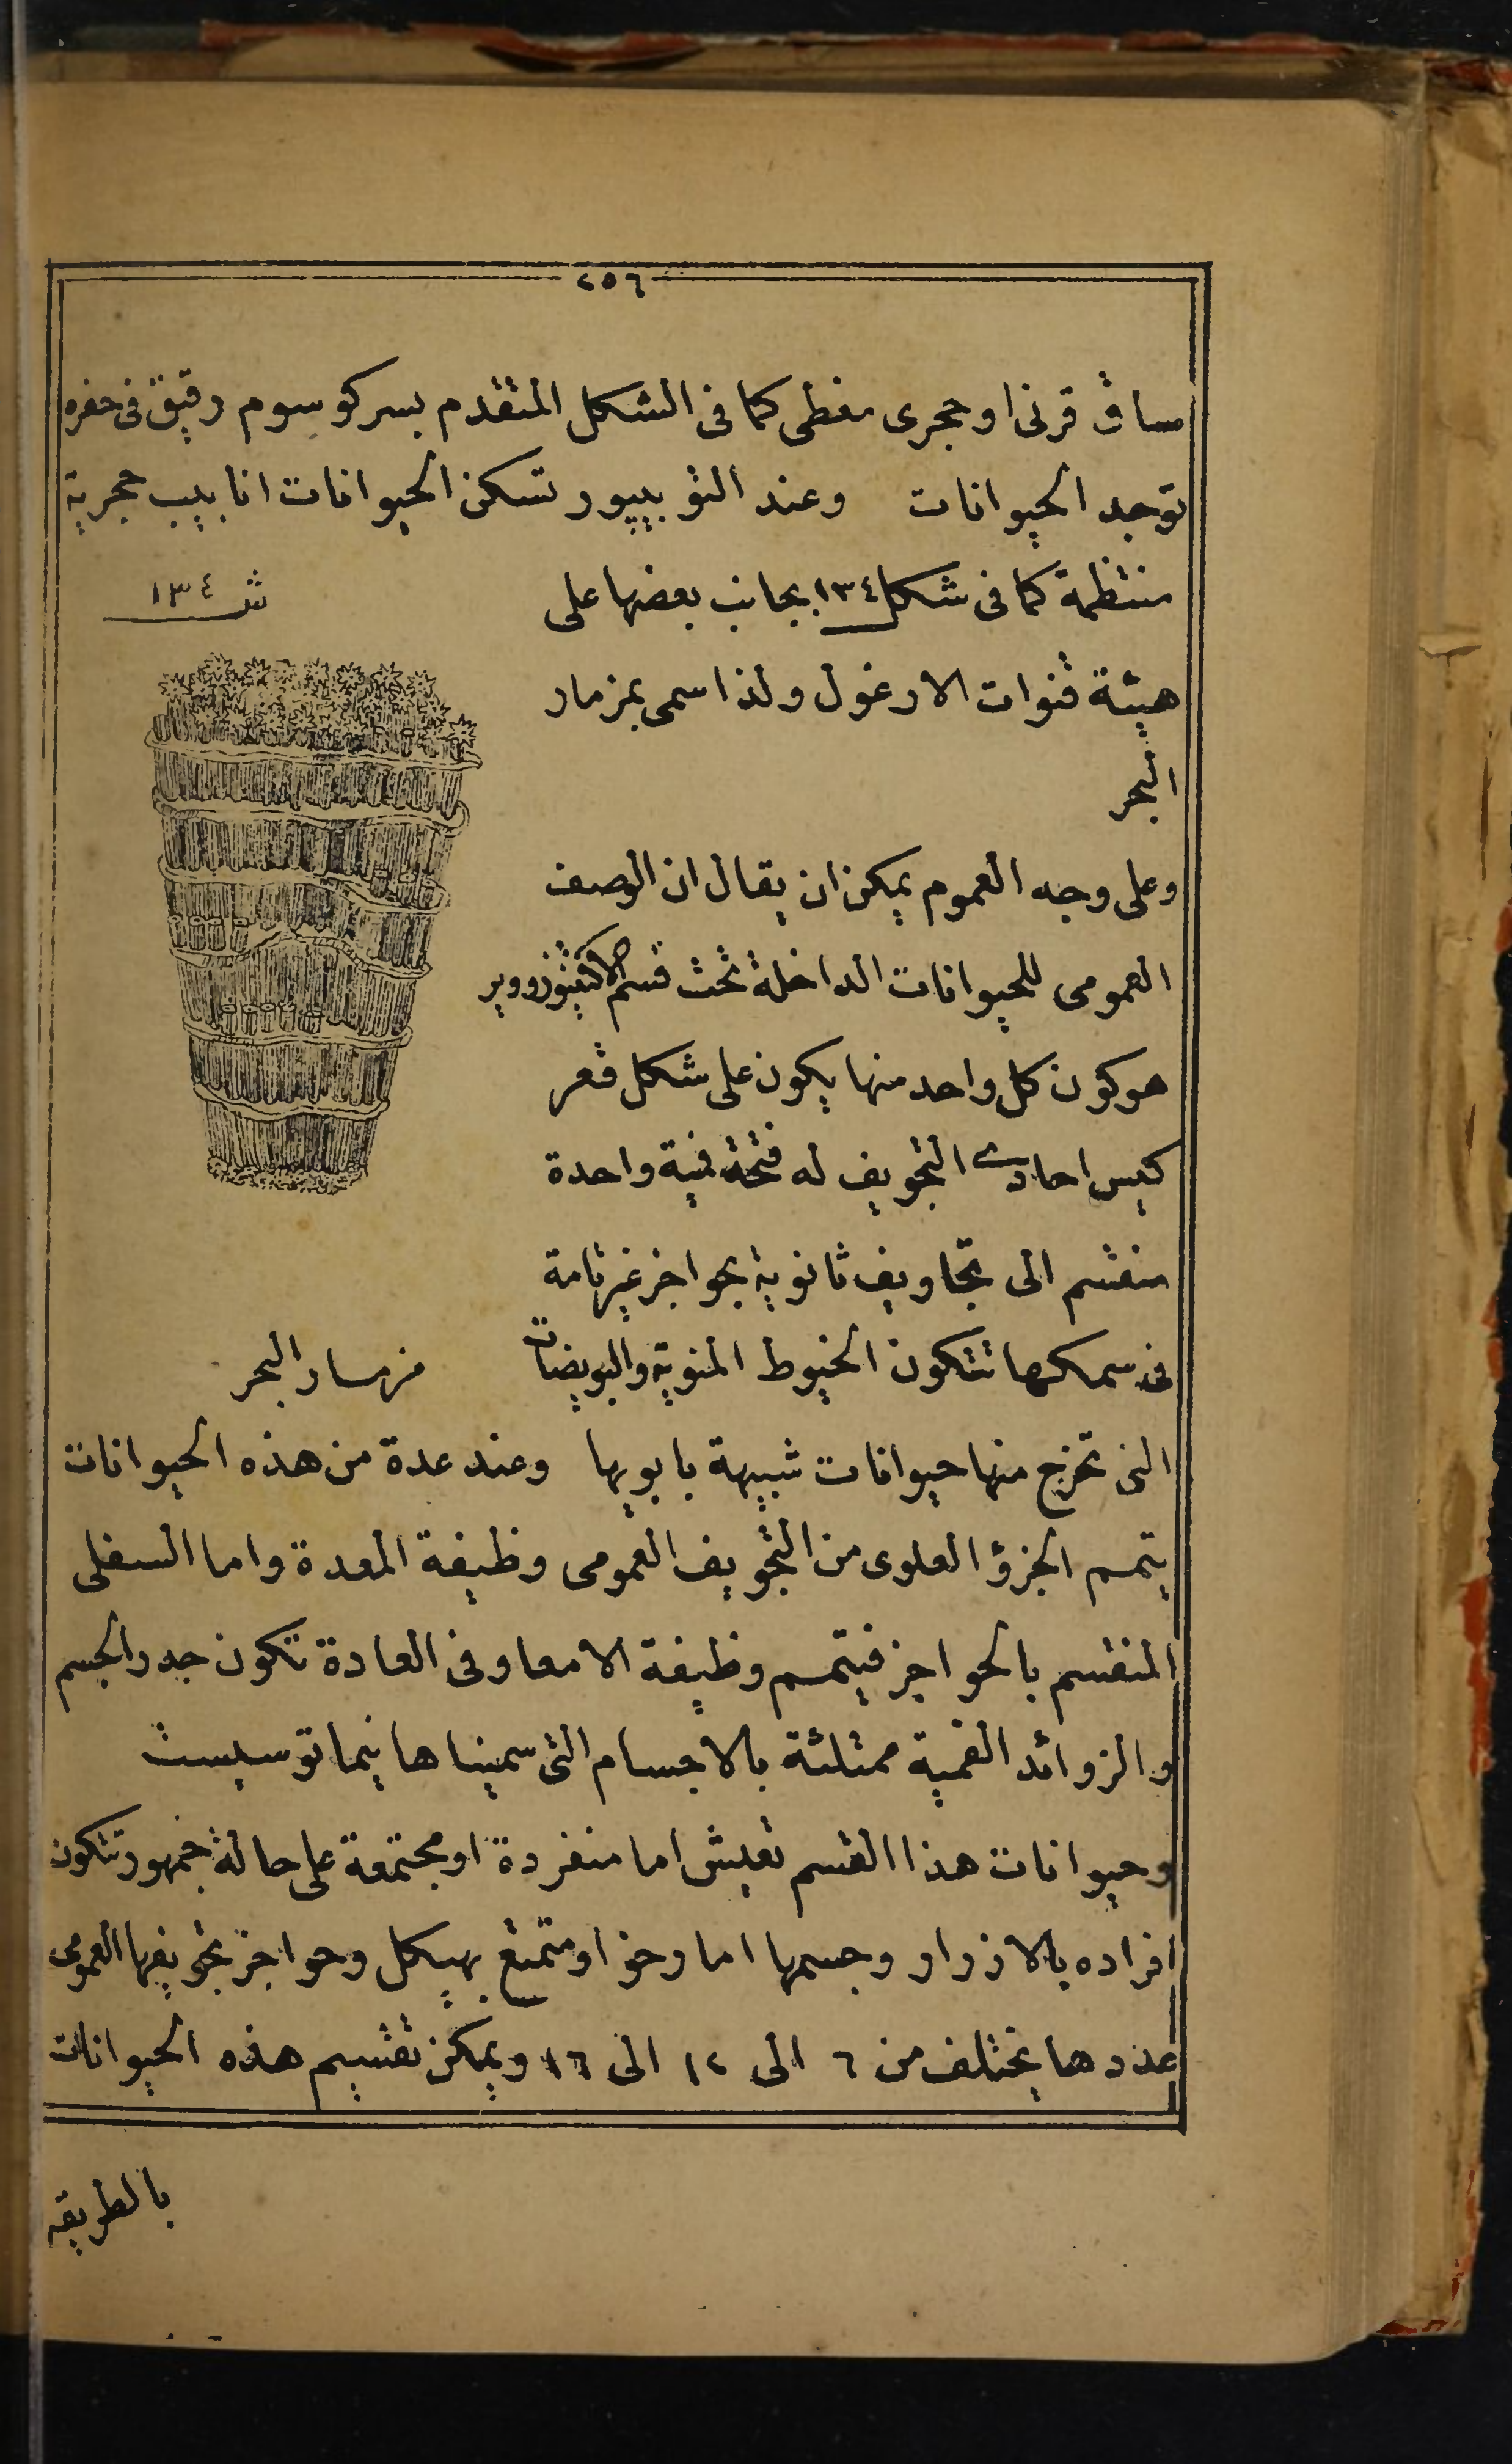 ٢٥٦
ساق قرنى او حجرى مغطى كما فى الشكل المتقدم بسركوسوم رقيق فى حفره
توجد الحيوانات وعند التوبيپور تسكن الحيوانات انابيب حجرية
منتظمة كما فى شكل ١٣٤ بجانب بعضها على
ش ١٣٤
هيئة قنوات الارغول ولذا سمى بمزمار
البحر
وعلى وجه العموم يمكن ان يقال ان الوصف
العمومى للحيوانات الداخلة تحت قسم الاكتينوزووير
هو كون كل واحد منها يكون على شكل قعر
كيس احادى التجويف له فتحة فمية واحدة
منقسم الى تجاويف ثانوية بحواجز غير تامة
فى سمكها تتكون الخيوط المنوية والبويضات
مزمار البحر
التى تخرج منها حيوانات شبيهة بابويها وعند عدة من هذه الحيوانات
يتمم الجزؤ العلوى من التجويف العمومى وظيفة المعدة واما السفلى
المنقسم بالحواجز فيتمم وظيفة الامعا وفى العادة تكون جدر الجسم
والزوائد الفمية ممتلئة بالاجسام التى سميناها نيماتوسيست
وحيوانات هذا القسم تعيش اما منفردة او مجتمعة على حالة جمهور تتكون
افراده بالازرار وجسمها اما رخو او متمتع بهيكل وحواجز تجويفها العمومى
عددها يختلف من ٦ الى ١٢ الى ١٦ ويمكن تقسيم هذه الحيوانات
بالطريقه